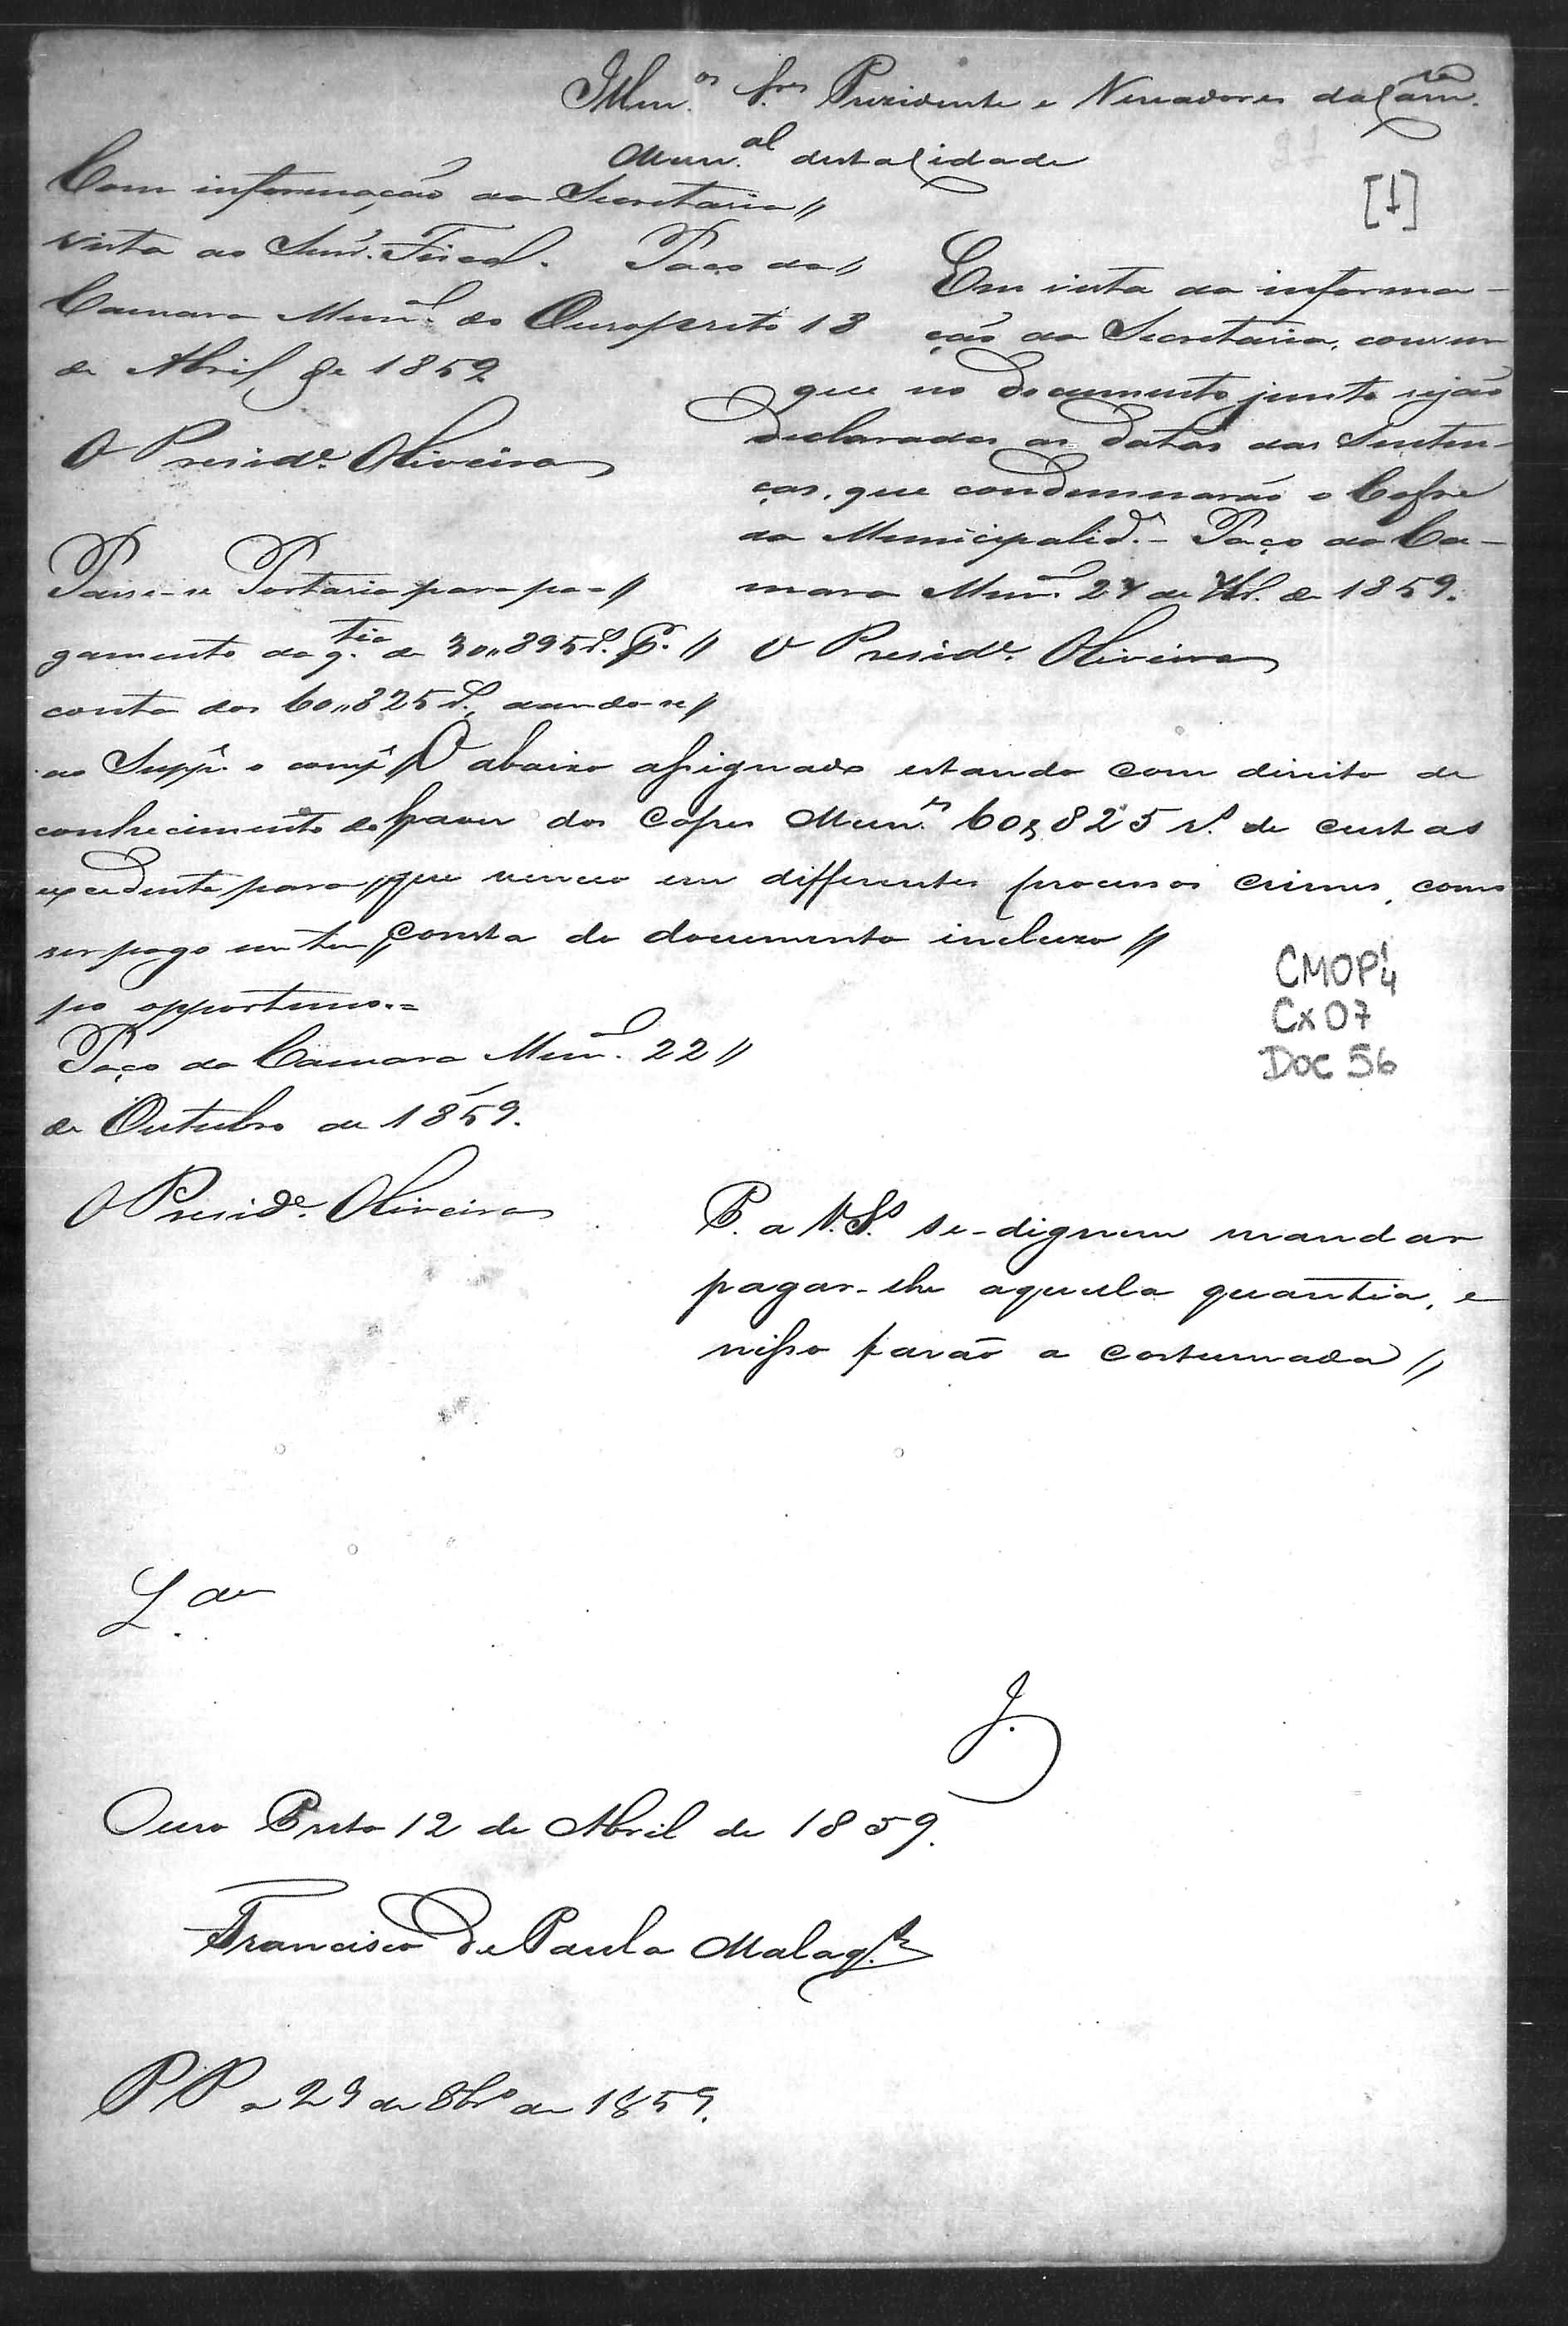 Illm.os Snr.es Prezidente e Vereadores da Cam.ra
Mun.al desta Cidade
[1]
Com informação da Secretaria //
vista ao Snr. Fiscal. Paço da //
Camara Mun.l do Ouropreto 13
de Abril de 1859
O Presid.e Oliveira
Em vista da informa-
ção da Secretaria, convem
que no documento junto sejão
declaradas as datas das Senten-
ças, que condemnarão o Cofre
da Municipalid.e - Paço da Ca-
mara Mun.l 27 de 7br. de 1859.
O Presid.e Oliveira
Passe-se Portaria para pa- //
gamento da q.tia de 30,,895 r.s p.r //
conta dos 60,,825 r.s, dando-se //
ao Supp.e o comp.e //
conhecimento do
excedente para //
ser pago em tem //
po opportuno.=
Paço da Camara Mun.l 22 //
de Outubro de 1859.
O Presid.e Oliveira
O abaixo assignado estando com direito de
haver dos Cofres Mun.es 60$825 r.s de custas
que venceo em differentes processos crimes, como
consta do documento incluzo //
CMOP 1/4
Cx 07
Doc 56
P. a V.S.s se-dignem mandar
pagar-lhe aquela quantia, e
nisso farão a costumada //
L.da
J.
Ouro Preto 12 de Abril de 1859.
Francisco de Paula Malag.
PP a 29 de 8br.o de 1859.